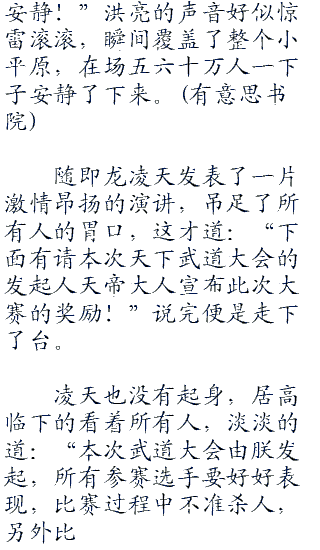 安静！”洪亮的声音好似惊
雷滚滚，瞬间覆盖了整个小
平原，在场五六十万人一下
子安静了下来。(有意思书
院)
随即龙凌天发表了一片
激情昂扬的演讲，吊足了所
有人的胃口，这才道：“下
面有请本次天下武道大会的
发起人天帝大人宣布此次大
赛的奖励！”说完便是走下
了台。
凌天也没有起身，居高
临下的看着所有人，淡淡的
道：“本次武道大会由朕发
起，所有参赛选手要好好表
现，比赛过程中不准杀人，
另外比